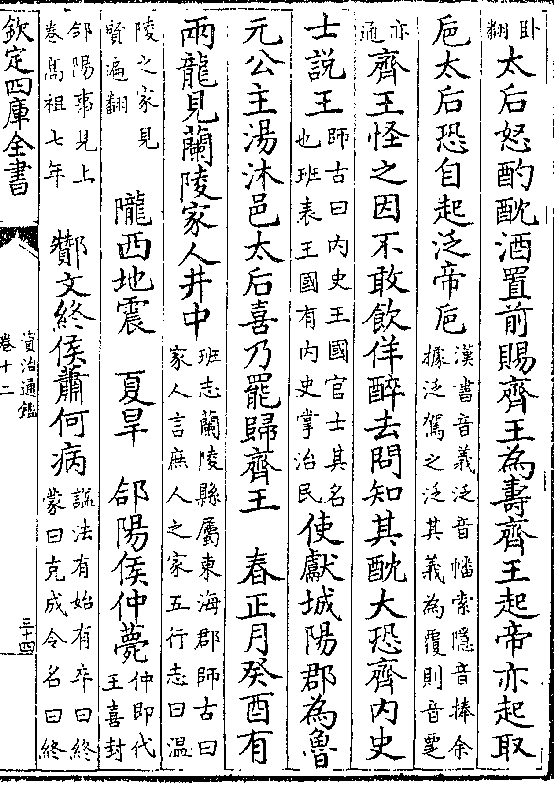 卧翻太后怒酌酖酒置前賜齊王為壽齊王起帝亦起取
巵太后恐自起泛帝巵漢書音義泛音幡索隱音捧余據泛駕之泛其義為覆則音覂
亦通齊王怪之因不敢飲佯醉去問知其酖大恐齊内史
士說王師古曰内史王國官士其名也班表王國有内史掌治民使獻城陽郡為魯
元公主湯沐邑太后喜乃罷歸齊王 春正月癸酉有
兩龍見蘭陵家人井中班志蘭陵縣屬東海郡師古曰家人言庶人之家五行志曰温
陵之家見賢遍翻 隴西地震 夏旱 郃陽侯仲薨仲即代王喜封
郃陽事見上卷高祖七年 酇文終侯蕭何病諡法有始有卒曰終蒙曰克成令名曰終
欽定四庫全書
資治通鑑
卷十二
三十四